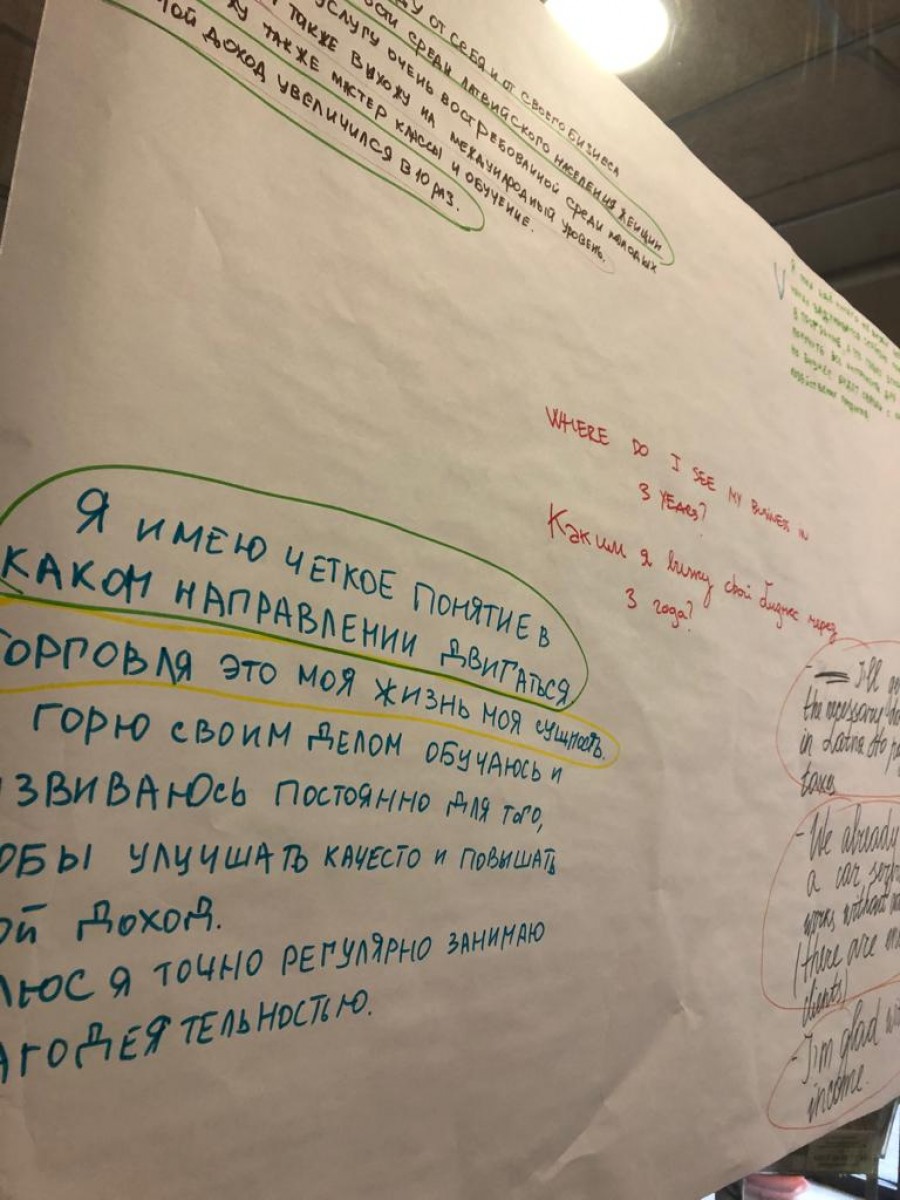 ДУ ОТ СЕБЯ И ОТ СВОЕГО БИЗНЕСА
СТИ СРЕДИ ЛАТВИЙСКОГО НАСЕЛЕНИЯ ЖЕНЩИН
УСЛУГУ ОЧЕНЬ ВОСТРЕБОВАННОЙ СРЕДИ МОЛОДЫХ
ТАКЖЕ ВЫХОЖУ НА МЕЖДУНАРОДНЫЙ УРОВЕНЬ.
У ТАКЖЕ МАСТЕР КЛАССЫ И ОБУЧЕНИЕ.
МОЙ ДОХОД УВЕЛИЧИЛСЯ В 10 РАЗ.
WHERE DO I SEE MY BUSINESS IN
3 YEARS?
Каким я вижу свой бизнес через
3 года?
Я ИМЕЮ ЧЕТКОЕ ПОНЯТИЕ В
КАКОМ НАПРАВЛЕНИИ ДВИГАТЬСЯ.
ТОРГОВЛЯ ЭТО МОЯ ЖИЗНЬ МОЯ СУЩНОСТЬ.
ГОРЮ СВОИМ ДЕЛОМ ОБУЧАЮСЬ И
ЗВИВАЮСЬ ПОСТОЯННО ДЛЯ ТОГО,
ОБЫ УЛУЧШАТЬ КАЧЕСТО И ПОВЫШАТЬ
ОЙ ДОХОД.
ЛЮС Я ТОЧНО РЕГУЛЯРНО ЗАНИМАЮ
АГОДЕЯТЕЛЬНОСТЬЮ.
- I'll
the necessary
in Latvia to
taxes
- We already
a car
works without
(there are
clients)
- I'm glad
income.